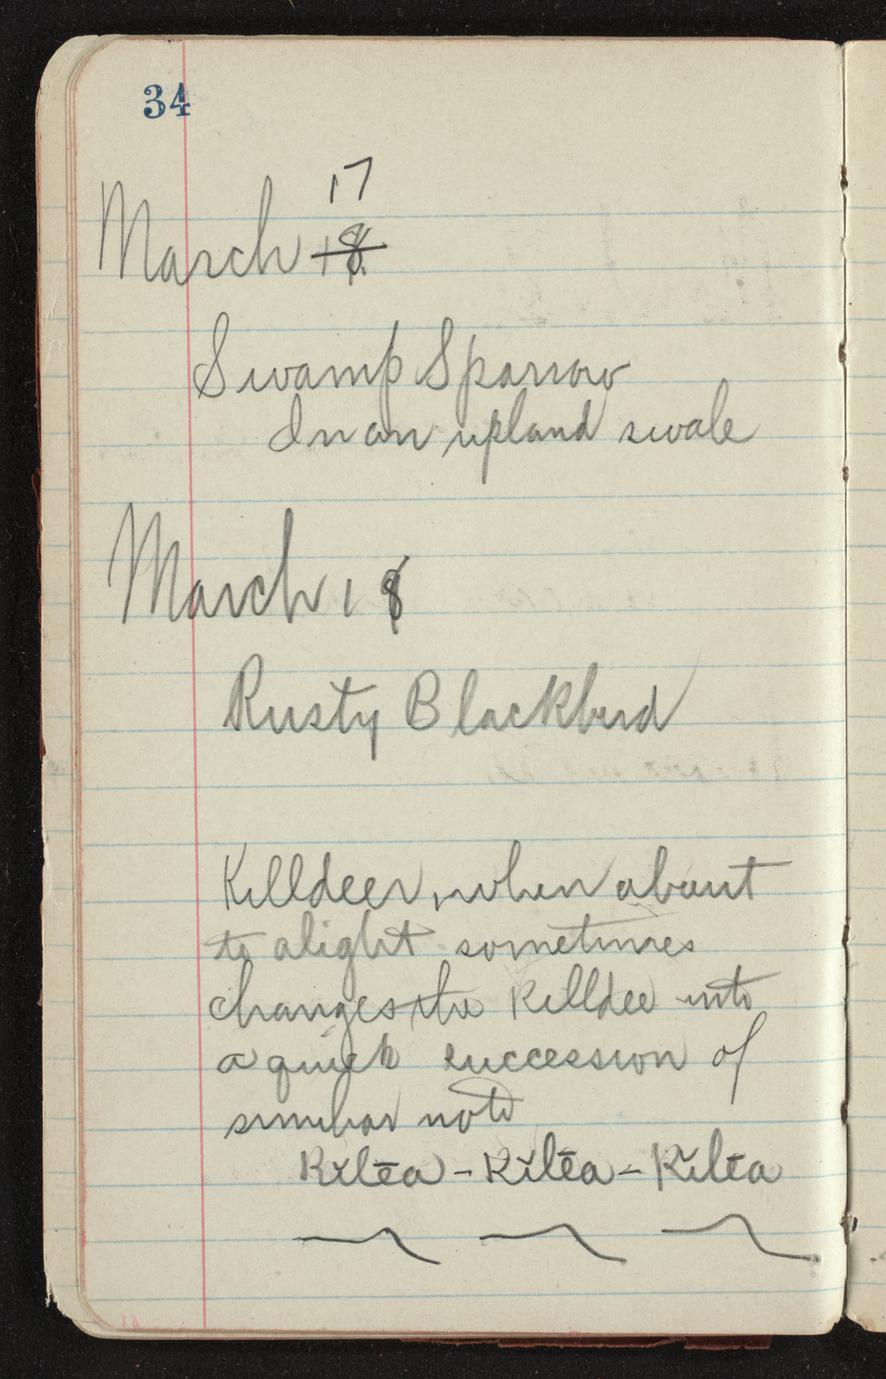 34
17
March 18
Swamp Sparrow
In an upland swale
March 18
Rusty Blackbird
Killdeer, when about
to alight sometimes
changes the Killdee into
a quick succession of
similar note
Kĭlēa - Kĭlēa - Kĭlēa